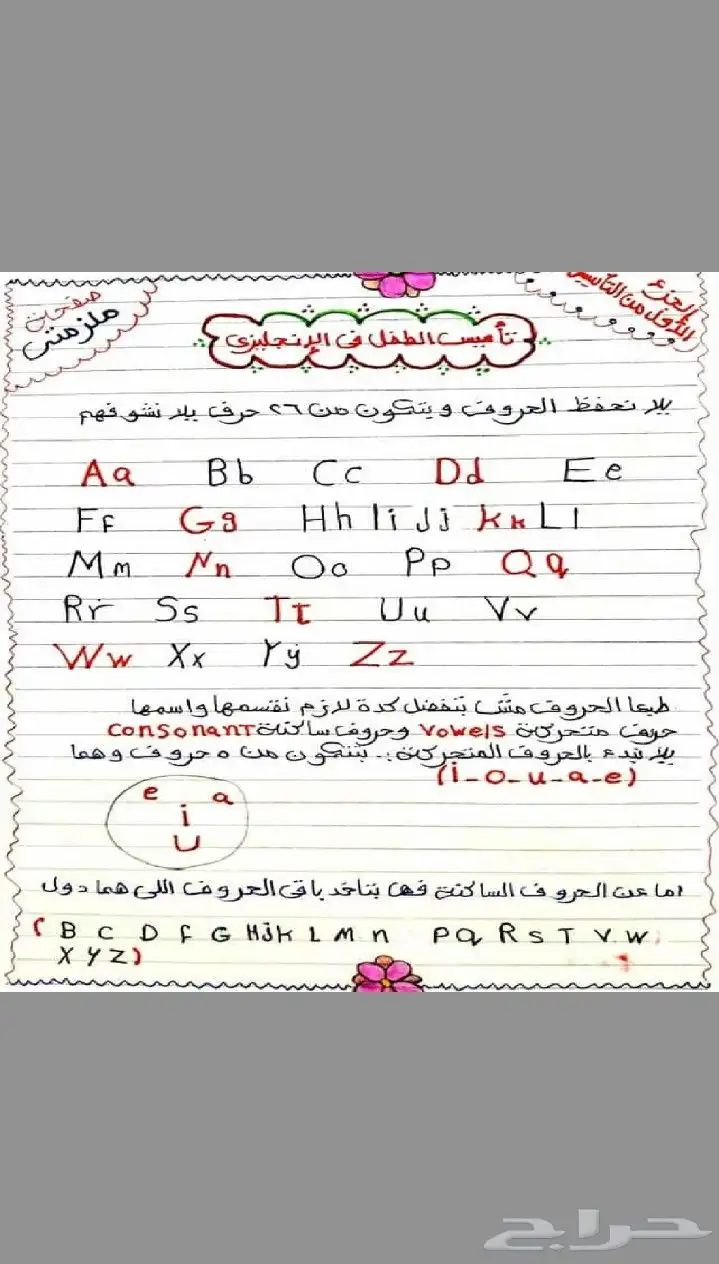 الجزء
الأول من التأسيس
صفحات
ملزمتى
تأسيس الطفل فى الإنجليزى
يلا نحفظ الحروف ويتكون من ٢٦ حرف يلا نشوفهم
Aa Bb Cc Dd Ee
Ff Gg Hh Ii Jj Kk Ll
Mm Nn Oo Pp Qq
Rr Ss Tt Uu Vv
Ww Xx Yy Zz
طبعا الحروف مش بتفضل كدة لازم نقسمها واسمها
حروف متحركة Vowels وحروف ساكنة Consonant
يلا نبدء بالحروف المتحركة .. بتتكون من ٥ حروف وهما
(i-o-u-a-e)
e a
i
U
اما عن الحروف الساكنة فهى بتاخد باقى الحروف اللى هما دول
( B C D F G H j K L M n P Q R S T V W
X Y Z )
حراج